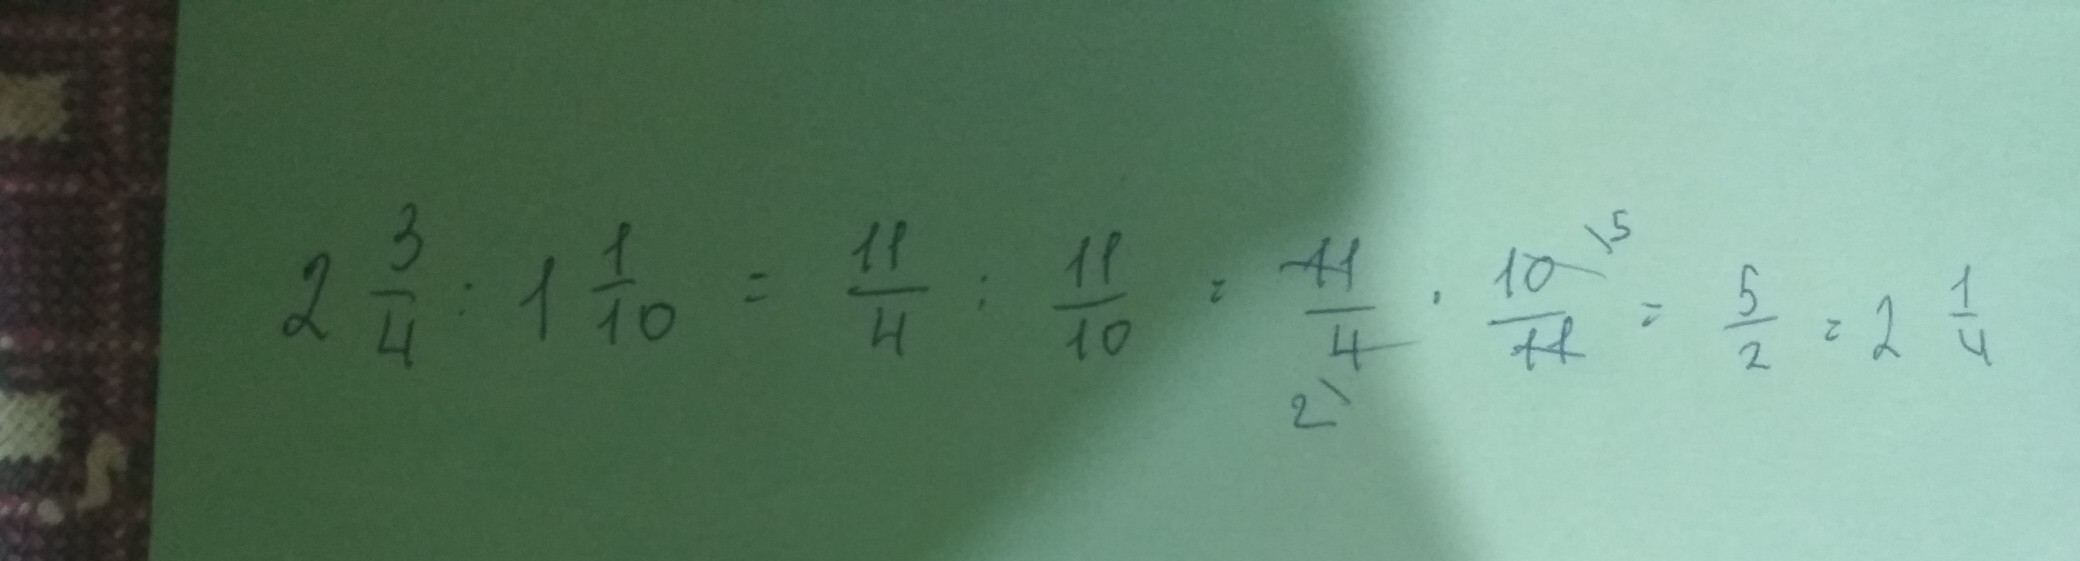 2 3/4 : 1 1/10 = 11/4 : 11/10 = 11/4 2 · 10/11 5 = 5/2 = 2 1/4